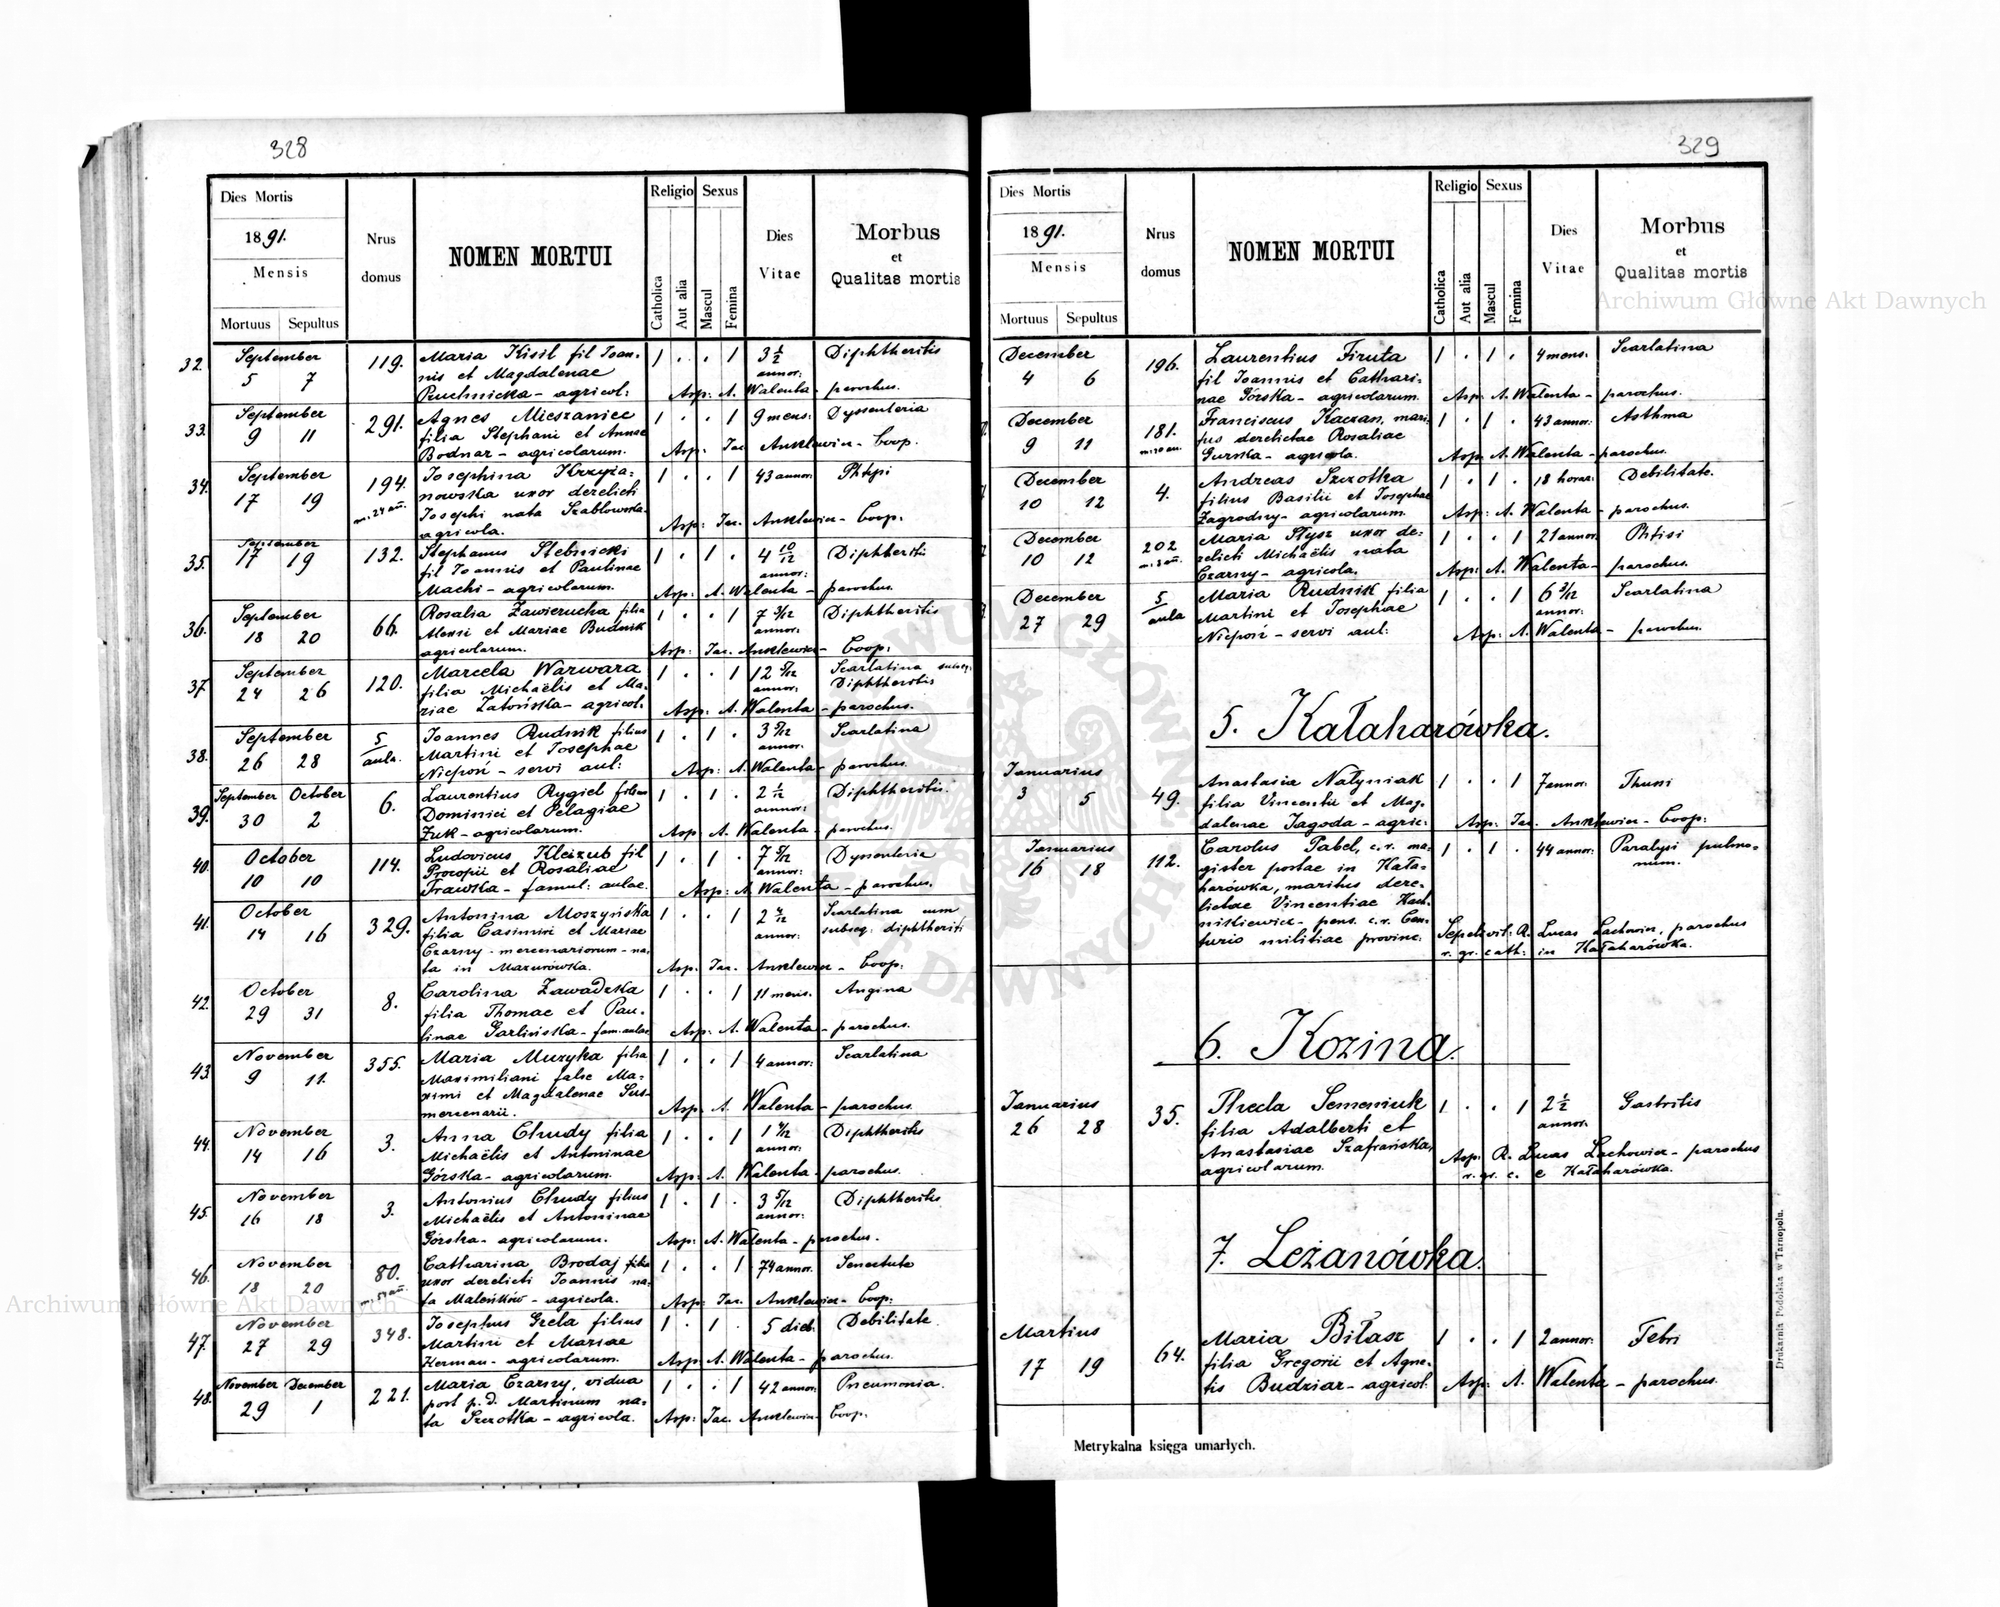 328
Dies Mortis
1891.
Mensis
Mortuus Sepultus
Nrus
domus
NOMEN MORTUI
Religio
Catholica
Aut alia
Sexus
Mascul
Femina
Dies
Vitae
Morbus
et
Qualitas mortis
32. September 5 7 119. Maria Kisil fil Joan- 1 . . 1 3 1/2 annor: Diphtheritis
nis et Magdalenae
Puchnicka - agricol: Asp: A. Walenta - parochus.
33. September 9 11 291. Agnes Mieszaniec 1 . . 1 9 mens: Dyssenteria
filia Stephani et Annae
Bodnar - agricolarum. Asp: Jac. Anklewicz - Coop.
34. September 17 19 194. Josephina Krzyża- 1 . . 1 43 annor: Phtysi
m. 24 añ. nowska uxor derelicti
Josephi nata Szablowska
agricola. Asp: Jac. Anklewicz - Coop:
35. September 17 19 132. Stephanus Stebnicki 1 . 1 . 4 10/12 annor: Diphtheriti
fil Joannis et Paulinae
Machi - agricolarum. Asp: A. Walenta - parochus.
36. September 18 20 66. Rosalia Zawierucha filia 1 . . 1 7 3/12 annor: Diphtheritis
et Mariae Budnik
agricolarum. Asp: Jac. Anklewicz - Coop:
37. September 24 26 120. Marcela Warwara 1 . . 1 12 5/12 annor: Scarlatina subseq:
filia Michaëlis et Ma- Diphtheritis
riae Zatońska - agricol. Asp: A. Walenta - parochus.
38. September 26 28 5/aula. Joannes Rudnik filius 1 . 1 . 3 5/12 annor. Scarlatina
Martini et Josephae
Niepoń - servi aul: Asp: A. Walenta - parochus.
39. September 30 October 2 6. Laurentius Rygiel filius 1 . 1 . 2 1/12 annor: Diphtheritis.
Dominici et Pelagiae
Żuk - agricolarum. Asp: A. Walenta - parochus.
40. October 10 10 114. Ludovicus Kleizub fil 1 . 1 . 7 5/12 annor: Dyssenteria
Procopii et Rosaliae
Frawska - famul: aulae. Asp: A. Walenta - parochus.
41. October 14 16 329. Antonina Moszyńska 1 . . 1 2 4/12 annor: Scarlatina cum
filia Casimiri et Mariae subseq: diphtheriti
Czarny - mercenariorum - na-
ta in Mazurówka. Asp: Jac. Anklewicz - Coop:
42. October 29 31 8. Carolina Zawadzka 1 . . 1 11 mens. Angina
filia Thomae et Pau-
linae Garlińska - fam. aulae Asp: A. Walenta - parochus.
43. November 9 11. 355. Maria Muzyka filia 1 . . 1 4 annor: Scarlatina
Maximiliani false Ma-
ximi et Magdalenae Sus-
mercenarii. Asp: A. Walenta - parochus.
44. November 14 16 3. Anna Chudy filia 1 . . 1 1 4/12 annor: Diphtheritis
Michaëlis et Antoninae
Górska - agricolarum. Asp: A. Walenta - parochus.
45. November 16 18 3. Antonius Chudy filius 1 . 1 . 3 5/12 annor: Diphtheritis
Michaëlis et Antoninae
Górska - agricolarum. Asp: A. Walenta - parochus.
46. November 18 20 80. Catharina Brodaj filia 1 . . 1 74 annor. Senectute
m. 54 añ. uxor derelicti Joannis na-
ta Maleńków - agricola. Asp: Jac. Anklewicz - Coop:
47. November 27 29 348. Josephus Grela filius 1 . 1 . 5 dieb: Debilitate.
Martini et Mariae
Herman - agricolarum. Asp: A. Walenta - parochus.
48. November 29 December 1 221. Maria Czarny, vidua 1 . . 1 42 annor: Pneumonia.
post p. d. Martinum na-
ta Szcrotka - agricola. Asp: Jac. Anklewicz - Coop.
329
Dies Mortis
1891.
Mensis
Mortuus Sepultus
Nrus
domus
NOMEN MORTUI
Religio
Catholica
Aut alia
Sexus
Mascul
Femina
Dies
Vitae
Morbus
et
Qualitas mortis
December 4 6 196. Laurentius Firuta 1 . 1 . 4 mens. Scarlatina
fil Joannis et Cathari-
nae Górska - agricolarum. Asp: A. Walenta - parochus.
December 9 11 181. Franciscus Kaczan, mari- 1 . 1 . 43 annor: Asthma
tus derelictae Rosaliae
Gurska - agricola. Asp: A. Walenta - parochus.
December 10 12 4. Andreas Szcrotka 1 . 1 . 18 horar: Debilitate.
filius Basilii et Josephae
Zagrodny - agricolarum. Asp: A. Walenta - parochus.
December 10 12 202 Maria Stysz uxor de- 1 . . 1 21 annor Phtisi
relicti Michaëlis nata
Czarny - agricola. Asp: A. Walenta - parochus.
December 27 29 5/aula Maria Rudnik filia 1 . . 1 6 3/12 annor: Scarlatina
Martini et Josephae
Niepoń - servi aul: Asp: A. Walenta - parochus.
5. Kałaharówka.
Januarius 3 5 49. Anastasia Natyniak 1 . . 1 7 annor: Thussi
filia Vincentii et Mag-
dalenae Jagoda - agric: Asp: Jac. Anklewicz - Coop:
Januarius 16 18 112. Carolus Pabel, c. r. ma- 1 . 1 . 44 annor: Paralysi pulmo-
gister postae in Kała- num.
harówka, maritus dere-
lictae Vincentiae
niskiewicz - pens. c. r. Cen-
turio militiae provinc: Sepelivit: R. Lucas Lachowicz, parochus
r. gr. cath: in Kałaharówka.
6. Kozina.
Januarius 26 28 35. Thecla Semeniuk 1 . . 1 2 1/2 annor. Gastritis
filia Adalberti et
Anastasiae Szafrańska,
agricolarum. Asp: R. Lucas Lachowicz - parochus
r. gr. c. e Kałaharówka.
7. Leżanówka.
Martius 17 19 64. Maria Biłasz 1 . . 1 2 annor: Febri
filia Gregorii et Agne-
tis Budziar - agricol. Asp: A. Walenta - parochus.
Metrykalna księga umarłych.
Drukarnia Podolska w Tarnopolu.
Archiwum Główne Akt Dawnych
Archiwum Główne Akt Dawnych